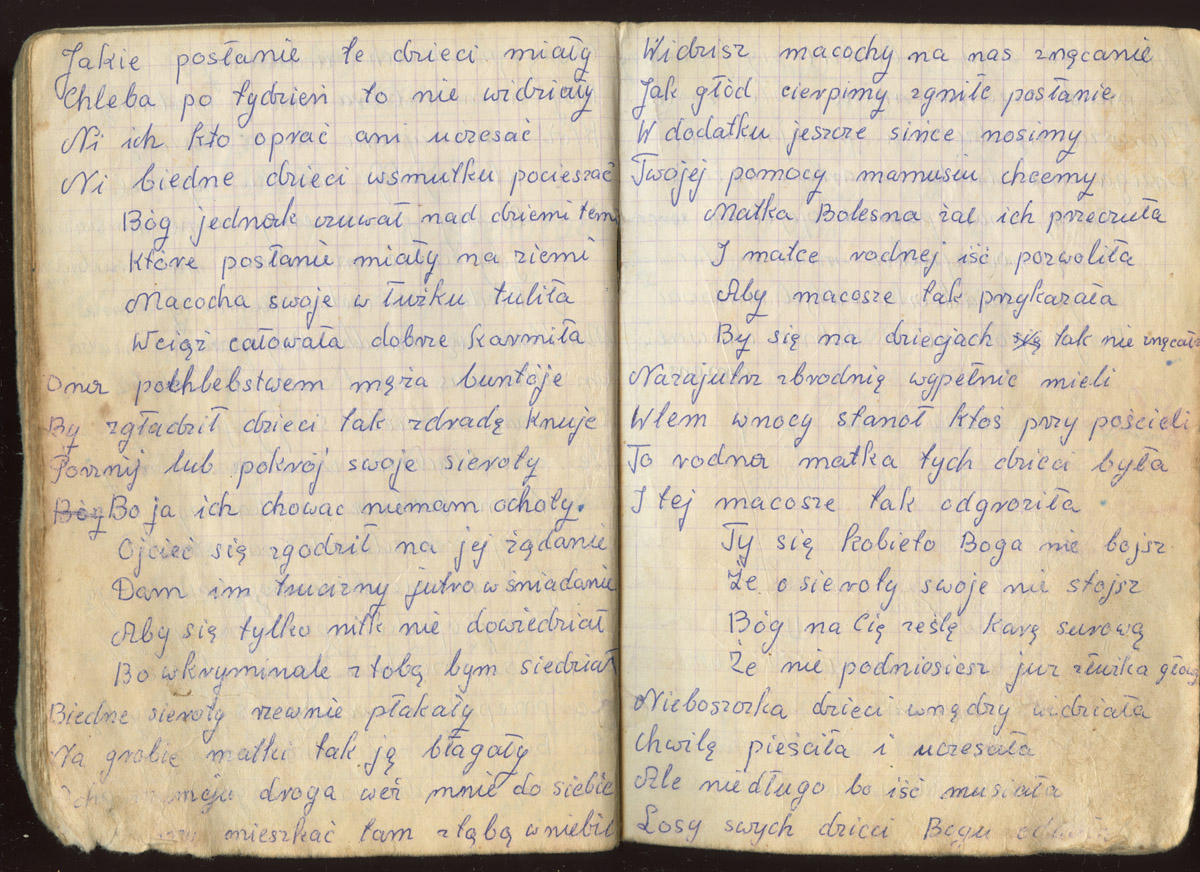 Jakie posłanie te dzieci miały
Chleba po tydzień to nie widziały
Ni ich kto oprać ani uczesać
Ni biedne dzieci wsmutku pocieszać
Bóg jednak czuwał nad dziemi temi
Które posłanie miały na ziemi
Macocha swoje w łużku tuliła
Wciąż całowała dobrze karmiła
Ona pochlebstwem męża buntóje
By zgładził dzieci tak zdradę knuje
Porznij lub pokrój swoje sieroty
Bóg Bo ja ich chować niemam ochoty.
Ojcieć się zgodził na jej żądanie
Dam im trucizny jutro w śniadanie
Aby się tylko nitk nie dowiedział
Bo wkryminale z tobą bym siedział
Biedne sieroty rzewnie płakały
Na grobie matki tak ją błagały
moja droga weź mnie do siebie
mieszkać tam ztąbą wniebie
Widzisz macochy na nas znęcanie
Jak głód cierpimy zgniłe posłanie
W dodatku jeszcze since nosimy
Twojej pomocy mamusiu chcemy
Matka Bolesna żal ich przeczuła
I matce rodnej iść pozwoliła
Aby macosze tak przykazała
By się na dziecjach się tak nie znęcała
Nazajutrz zbrodnię wypełnic mieli
Wtem wnocy stanoł ktoś przy pościeli
To rodna matka tych dzieci była
I tej macosze tak odgroziła
Ty się kobieto Boga nie bojsz
Że o sieroty swoje nie stojsz
Bóg na Cię ześlę karę surową
Że nie podniosiesz juz złużka głowy
Nieboszczka dzieci wnędzy widziała
Chwilę pieściła i uczesała
Ale niedługo bo iść musiała
Losy swych dzieci Bogu